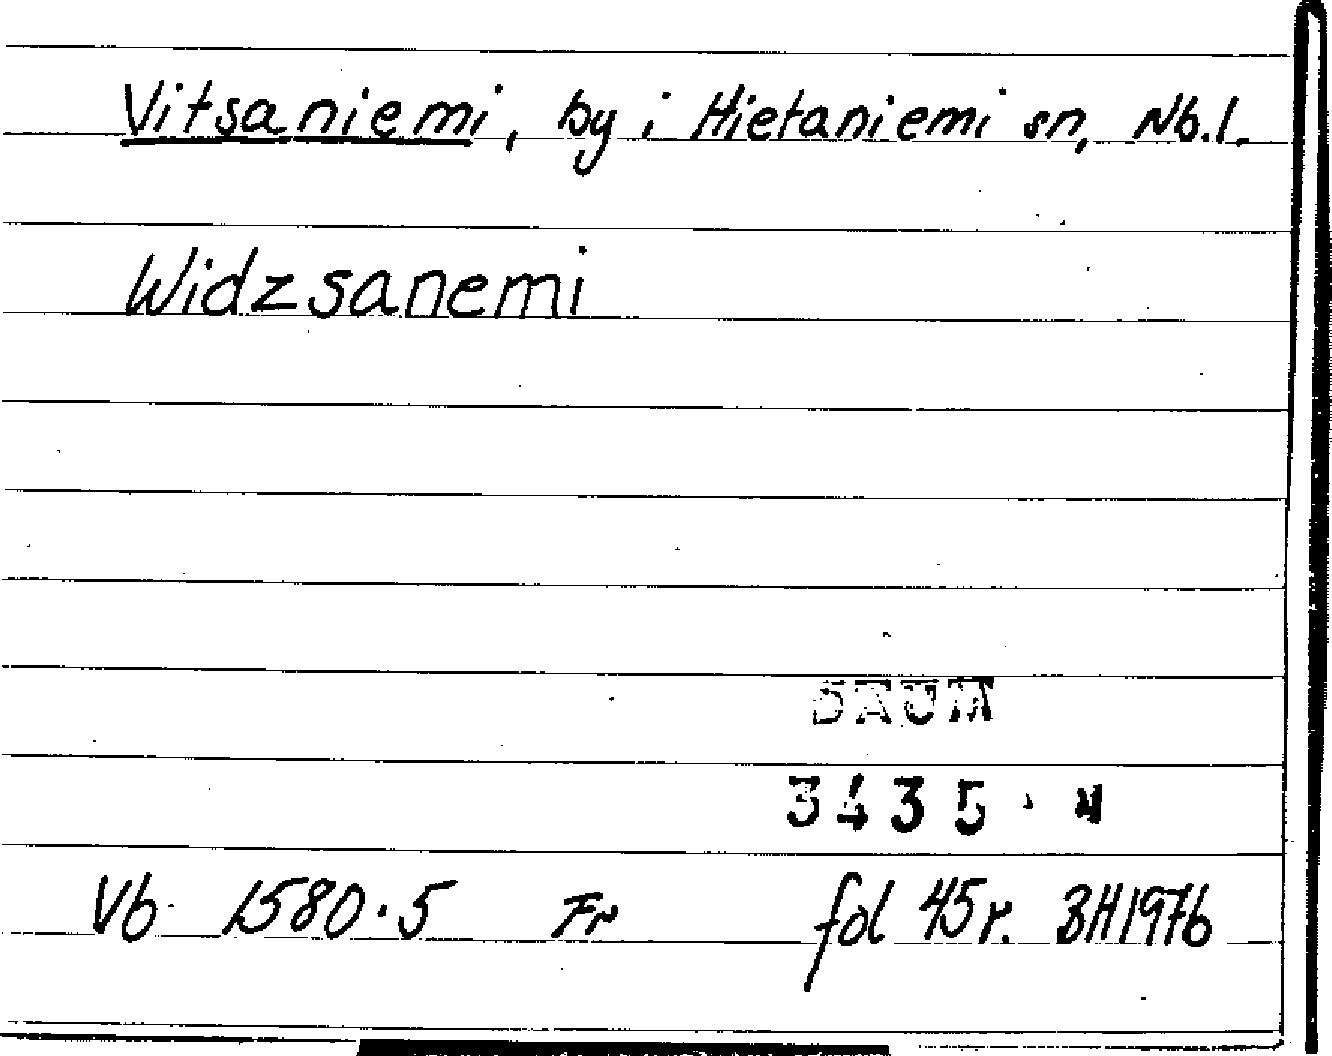 Vitsaniemi, by i Hietaniemi sn, Nb.l.
Widzsanemi
DAUM
3435
Vb 1580.5 Fr fol 45r. BH1976